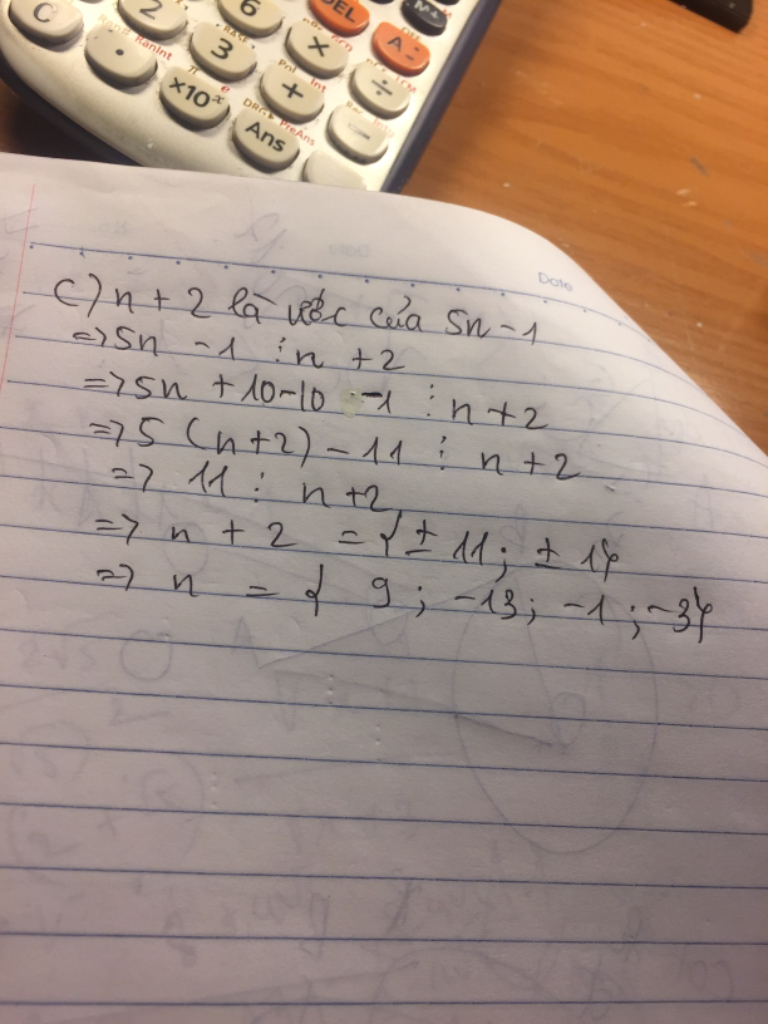 C
2
6
DEL
M+
Ran#
RanInt
.
3
×
A
π
e
×10ˣ
Pol
Int
+
÷
DRG▸
PreAns
Ans
−
Date
c) n + 2 là ước của 5n - 1
=> 5n - 1 ⋮ n + 2
=> 5n + 10 - 10 - 1 ⋮ n + 2
=> 5 (n+2) - 11 ⋮ n + 2
=> 11 ⋮ n + 2
=> n + 2 = { ± 11 ; ± 1 }
=> n = { 9 ; -13 ; -1 ; -3 }